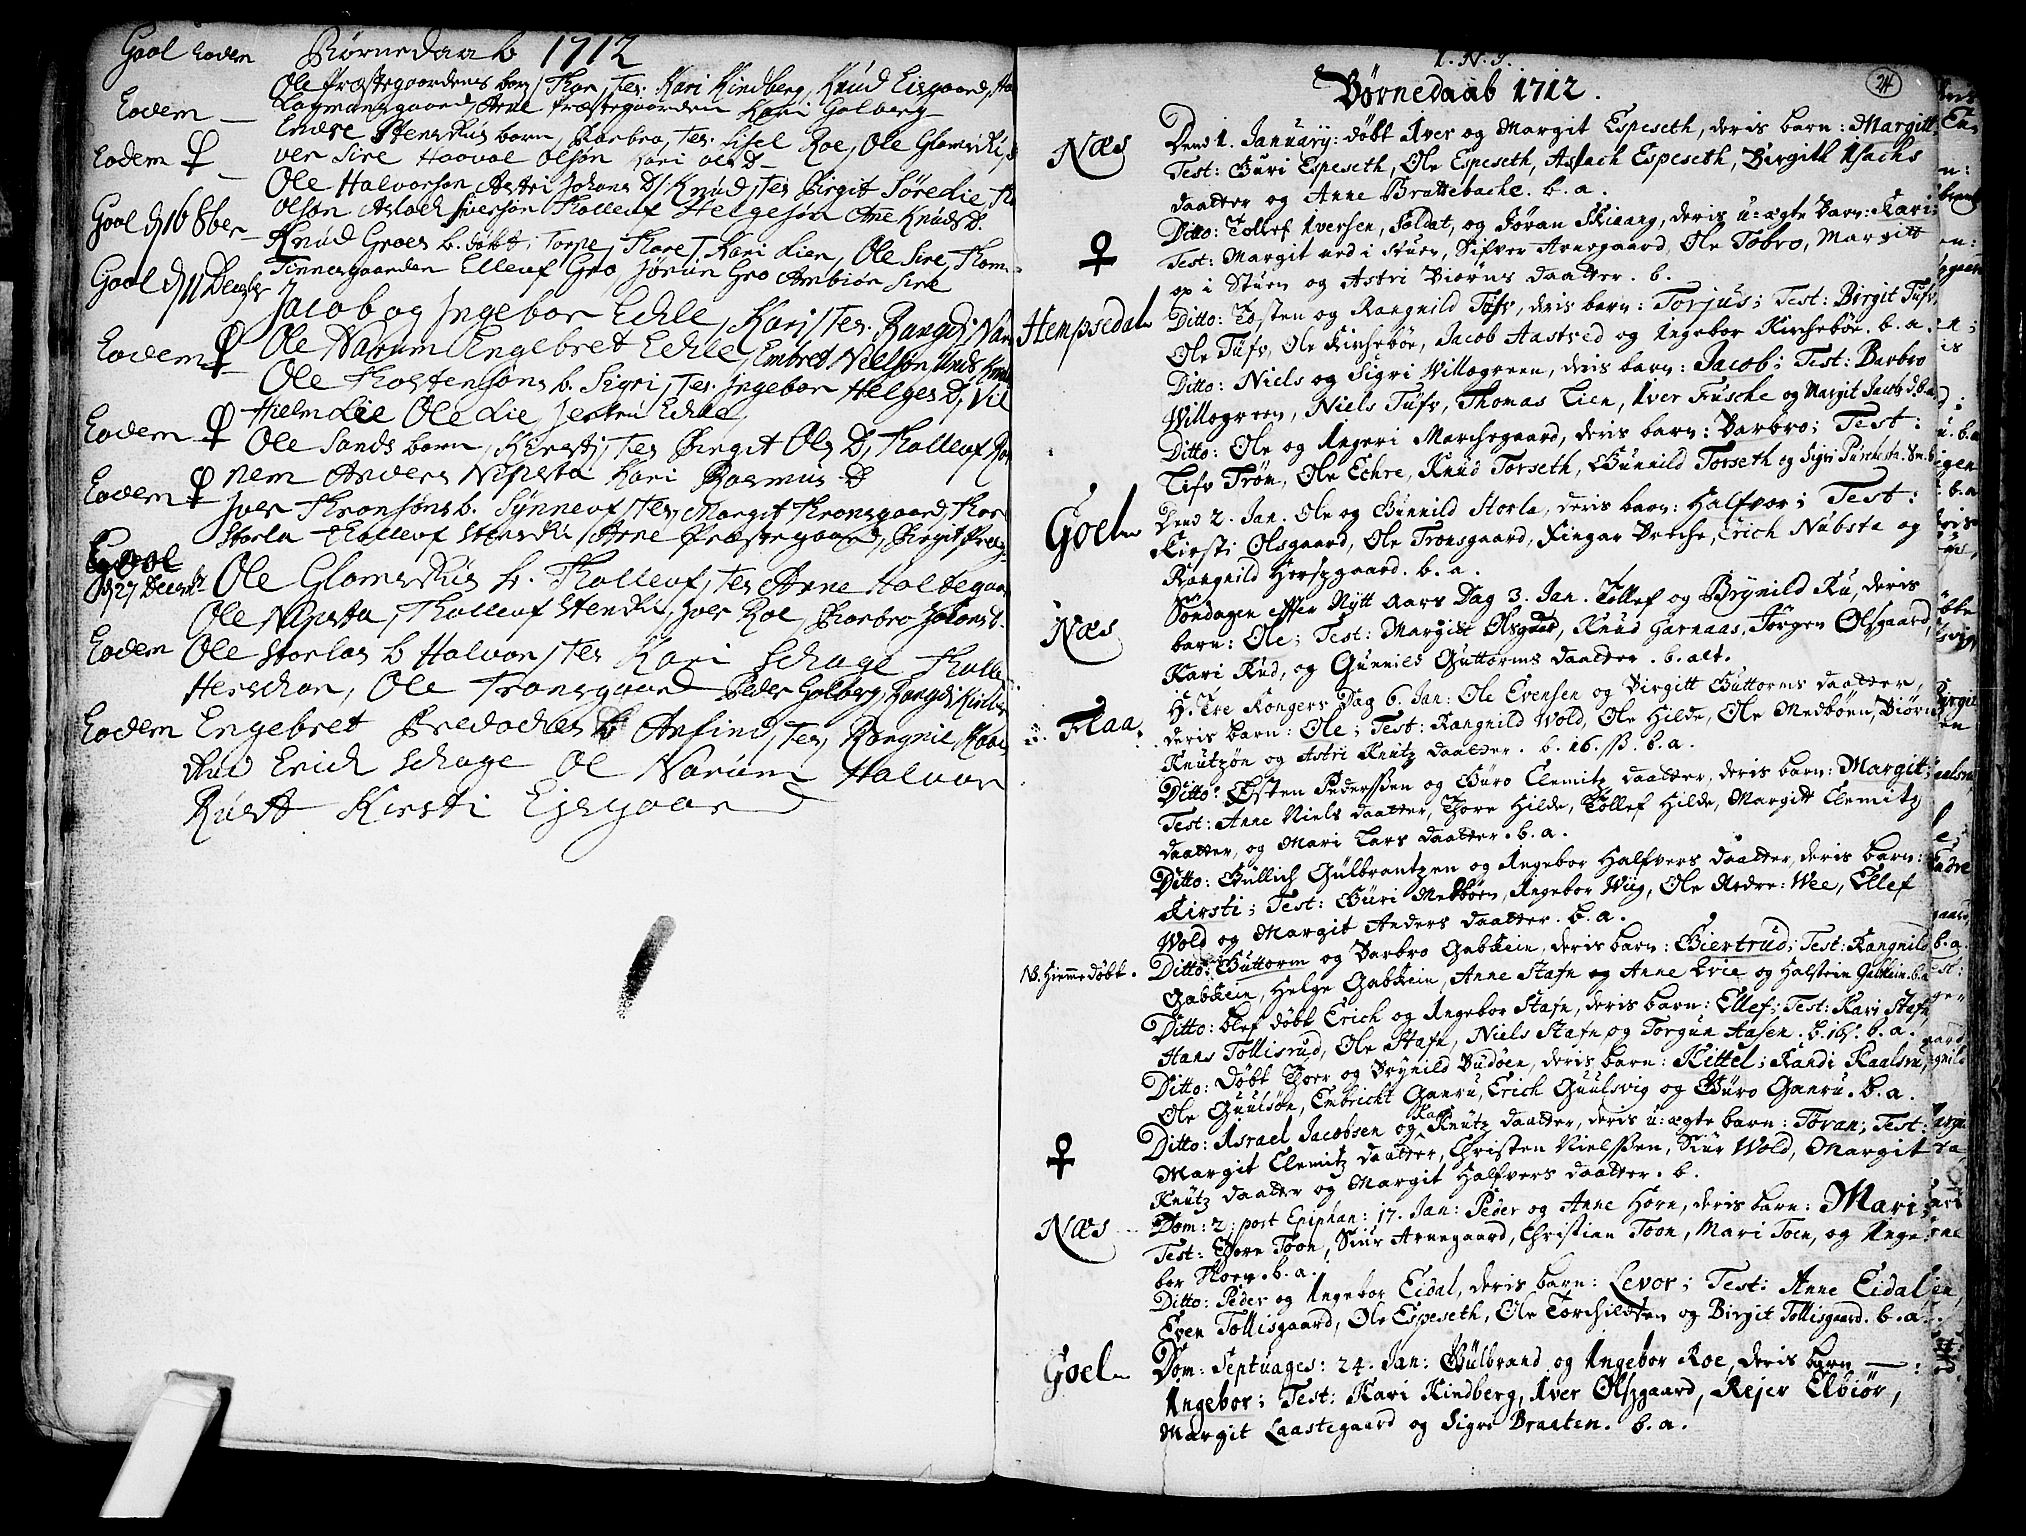 Gaol Eodem Børnedaab 1712
Ole Præstegaardens barn, Thor, Tes. Kari Kindberg, Knud Eisgaard,
Eodem Lagmansgaard, Arne Præstegaarden Kari Golberg
Endre Stensrüs barn, Barbro, Tes. Sisel Roe, Ole Glomsrü,
Eodem ♀ ver Sire Haavol Olsøn Kari Ols D
Ole Halvorsøn Astri Johans D, Knud, Tes Birgit Søre Lie
Gaal d 16 8ber Olsøn Aslach Iversøn Tholleuf Helgesøn Ane Knuds D.
Knud Groes b. døbt, Torpe, Thore, T. Kari Lien, Ole Sire, Thom
Gaal d 11 Decembr Tinnesgaarden Elleuf Gro, Jørun Gro Ambiør Sire
Jacob og Ingebor Echle, Kari, Tes. Rangdi
Eodem ♀ Ole Narum Engebret Echle, Embret Nielsøn
Ole Thostensøns b. Sigri, Tes. Ingebor Helges D,
Hielm Lie Ole Lie Echle
Eodem ♀ Ole Sands barn, Kirsti, Tes Birgit Ols D, Tholleuf
nem Anders Nipsta Kari Rasmus D
Eodem ♀ Iver Thronsøns b. Synneuf, Tes, Margit Thronsgaard, Thor
Storla Tholleuf Stensrü, Arne Præstegaard, Birgit
Gaal
d 27 Decembr Ole Glomsrüs b. Tholleuf, Tes Anne Holtegaar
Ole Nipsta, Tholleuf Stensrü, Iver Roe, Barbro
Eodem Ole Storlas b Halvor, Tes Kari Schage Tholle
Herschon, Ole Tronsgaard Peder Golberg, Rangdi
Eodem Engebret Bredoches b Anfind, Tes, Rangnil,
Rud Erich Schage Ol Narum Halvor
Rust Kirsti Ejsgaard
I. N. J.
24
Børnedaab 1712.
Næs Dend 1. January: døbt Iver og Margit Espeseth, deris barn: Margitt
Test: Guri Espeseth, Ole Espeseth, Aslach Espeseth, Birgith Isachs
daatter og Anne Brattebache. b. a.
♀ Ditto: Tollef Iversen, Soldat, og Jøran Skinang, deris u: ægte Barn: Kari;
Test: Margit ned i Stuen, Sifver Arnegaard, Ole Tobro, Margitt
op i Stuen og Astri Biørns daatter. b.
Hempsedal Ditto: Tosten og Rangnild Tufv, deris barn: Torjus; Test: Birgit Tufv,
Ole Tufv, Ole Kirchebøe, Jacob Aastved og Ingebor Kirchebøe. b. a.
Ditto: Niels og Sigri Willogreen, deris barn: Jacob; Test: Barbro
Willogreen, Niels Tufv, Thomas Lien, Iver Fusche og Margit Jacobs d. b.a.
Ditto: Ole og Angeri Marchegaard, deris barn: Barbro; Test:
Lifv Trøn, Ole Echre, Knud Torseth, Gunnild Torseth og Sigri
Goel Dend 2. Jan. Ole og Gunnild Storla, deris barn: Halfvor; Test:
Kirsti Olsgaard, Ole Tronsgaard, Fingar Breche, Erich Nubsta og
Rangnild Hersgaard. b. a.
Næs Søndagen effter Nytt Aars Dag 3. Jan. Tollef og Brynild Ru, deris
barn: Ole; Test: Margitt Olsgaard, Knud Garnaas, Jørgen Olsgaard,
Kari Rud, og Gunnild Guttorms daatter. b. alt.
Flaa. H. Tre Kongers Dag 6. Jan: Ole Evensen og Birgitt Guttorms daatter,
deris barn: Ole; Test: Rangnild Wold, Ole Hilde, Ole Medbøen, Biørn
Knutzøn og Astri Knutz daatter. b. 16. ß. b. a.
Ditto: Østen Pederssen og Guro Clemitz daatter, deris barn: Margit;
Test: Anne Niels daatter, Thore Hilde, Tollef Hilde, Margitt Clemitz
daatter, og Mari Lars daatter. b. a.
Ditto: Gullich Gulbrantzen og Ingebor Halfvers daatter, deris barn:
Kirsti; Test: Guri Medbøen, Ingebor Wiig, Ole Ardre: Wee, Ellef
Wold og Margit Anders daatter. b. a.
NB. Hiemmedøbt. Ditto: Guttorm og Barbro Gabkein, deris barn: Giertrud; Test: Rangnild
Gabkein, Helge Gabkein, Anne Stafn og Anne Evie og Halstein Gabkein. b.a
Ditto: blef døbt Erich og Ingebor Stafn, deris barn: Ellef; Test: Kari Stafn
Hans Tollisrud, Ole Stafn, Niels Stafn og Torgun Aasen. b. 16ß. b. a.
Ditto: døbt Thoer og Brynild Budøen, deris barn: Kittel; Randi Kaalsru,
Ole Guulsøn, Embricht Ganru, Erich Guulsvig og Guro Ganru. b. a.
♀ Ditto: Asrael Jacobsen og Kari Knutz daatter, deris u: ægte barn: Jøran; Test:
Margit Clemitz daatter, Christen Nielssen, Siur Wold, Margit
Knutz daatter og Margit Halfvers daatter. b.
Næs Dom: 2: post Epiphan: 17. Jan: Peder og Anne Horn, deris barn: Mari;
Test: Thore Toon, Siur Arnegaard, Christian Toon, Mari Toen, og Inge
bor Thoen. b. a.
Ditto: Peder og Ingebor Eidal, deris barn: Levor; Test: Anne Eidal
Even Tollisgaard, Ole Espeseth, Ole Torchildsten og Birgit Tollisgaard. b. a.
Goel Dom: Septuages: 24. Jan: Gulbrand og Ingebor Roe, deris barn — :
Ingebor; Test: Kari Kindberg, Iver Olsgaard, Rejer Elbiør,
Margit Laastegaard og Sigri Braaten. b. a.